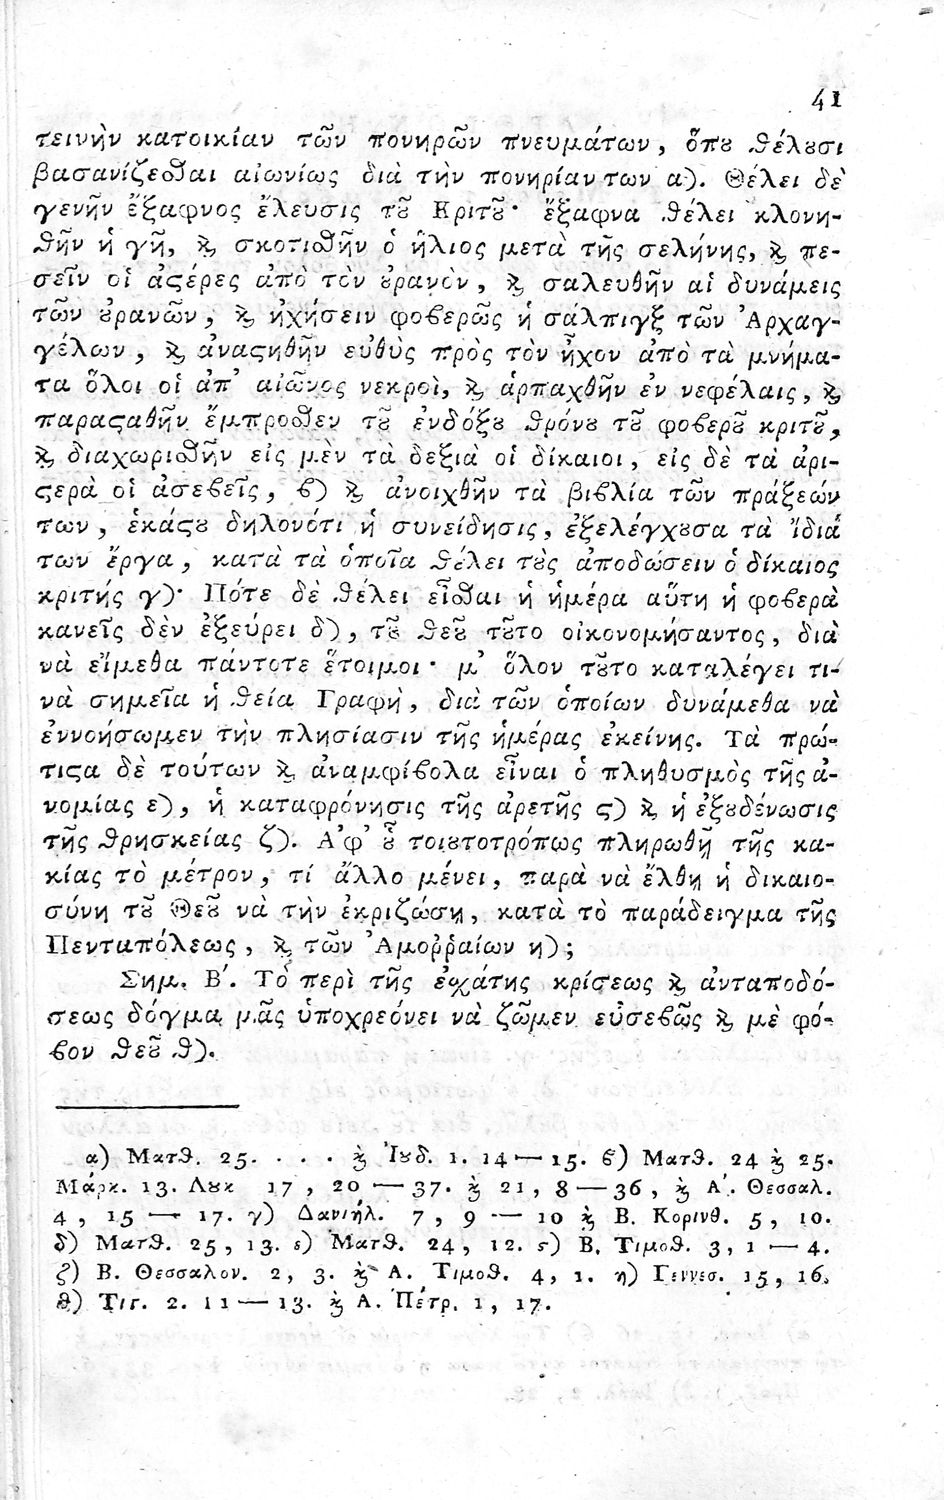 41
τεινὴν κατοικίαν τῶν πονηρῶν πνευμάτων, ὅπȣ θέλȣσι
βασανίζεσθαι αἰωνίως διὰ τὴν πονηρίαν των α). Θέλει δὲ
γενῆν ἔξαφνος ἔλευσις τȣ͂ Κριτȣ͂· ἔξαφνα θέλει κλονη-
θῆν ἡ γῆ, ϗ σκοτισθῆν ὁ ἥλιος μετὰ τῆς σελήνης, ϗ πε-
σεῖν οἱ ἀϛέρες ἀπὸ τὸν ȣ̓ρανὸν, ϗ σαλευθῆν αἱ δυνάμεις
τῶν ȣ̓ρανῶν, ϗ ἠχήσειν φοβερῶς ἡ σάλπιγξ τῶν Ἀρχαγ-
γέλων, ϗ ἀναϛηθῆν εὐθὺς πρὸς τὸν ἦχον ἀπὸ τὰ μνήμα-
τα ὅλοι οἱ ἀπ' αἰῶνος νεκροὶ, ϗ ἁρπαχθῆν ἐν νεφέλαις, ϗ
παραϛαθῆν ἔμπροσθεν τȣ͂ ἐνδόξȣ θρόνȣ τȣ͂ φοβερȣ͂ κριτȣ͂,
ϗ διαχωρισθῆν εἰς μὲν τὰ δεξιὰ οἱ δίκαιοι, εἰς δὲ τὰ ἀρι-
ϛερὰ οἱ ἀσεβεῖς, β) ϗ ἀνοιχθῆν τὰ βιβλία τῶν πράξεών
των, ἑκάϛȣ δηλονότι ἡ συνείδησις, ἐξελέγχȣσα τὰ ἴδιά
των ἔργα, κατὰ τὰ ὁποῖα θέλει τȣ̀ς ἀποδώσειν ὁ δίκαιος
κριτής γ)· Πότε δὲ θέλει εἶσθαι ἡ ἡμέρα αὕτη ἡ φοβερὰ
κανεῖς δὲν ἐξεύρει δ), τȣ͂ θεȣ͂ τȣ͂το οἰκονομήσαντος, διὰ
νὰ εἴμεθα πάντοτε ἕτοιμοι· μ' ὅλον τȣ͂το καταλέγει τι-
νὰ σημεῖα ἡ θεία Γραφὴ, διὰ τῶν ὁποίων δυνάμεθα νὰ
ἐννοήσωμεν τὴν πλησίασιν τῆς ἡμέρας ἐκείνης. Τὰ πρώ-
τιϛα δὲ τούτων ϗ ἀναμφίβολα εἶναι ὁ πληθυσμὸς τῆς ἀ-
νομίας ε), ἡ καταφρόνησις τῆς ἀρετῆς ϛ) ϗ ἡ ἐξȣδένωσις
τῆς θρησκείας ζ). Ἀφ' ȣ̔͂ τοιȣτοτρόπως πληρωθῇ τῆς κα-
κίας τὸ μέτρον, τί ἄλλο μένει, παρὰ νὰ ἔλθῃ ἡ δικαιο-
σύνη τȣ͂ Θεȣ͂ νὰ τὴν ἐκριζώσῃ, κατὰ τὸ παράδειγμα τῆς
Πενταπόλεως, ϗ τῶν Ἀμοῤῥαίων η);
Σημ. Β΄. Τὸ περὶ τῆς ἐσχάτης κρίσεως ϗ ἀνταποδό-
σεως δόγμα μᾶς ὑποχρεόνει νὰ ζῶμεν εὐσεβῶς ϗ μὲ φό-
βον θεȣ͂ θ).
α) Ματθ. 25. . . . ϗ Ἰȣδ. 1. 14 — 15. β) Ματθ. 24 ϗ 25.
Μάρκ. 13. Λȣκ 17, 20 — 37. ϗ 21, 8 — 36, ϗ Α΄. Θεσσαλ.
4, 15 — 17. γ) Δανιήλ. 7, 9 — 10 ϗ Β. Κορινθ. 5, 10.
δ) Ματθ. 25, 13. ε) Ματθ. 24, 12. ϛ) Β. Τιμοθ. 3, 1 — 4.
ζ) Β. Θεσσαλον. 2, 3. ϗ Α. Τιμοθ. 4, 1. η) Γεννεσ. 15, 16.
θ) Τιτ. 2. 11 — 13. ϗ Α. Πέτρ. 1, 17.